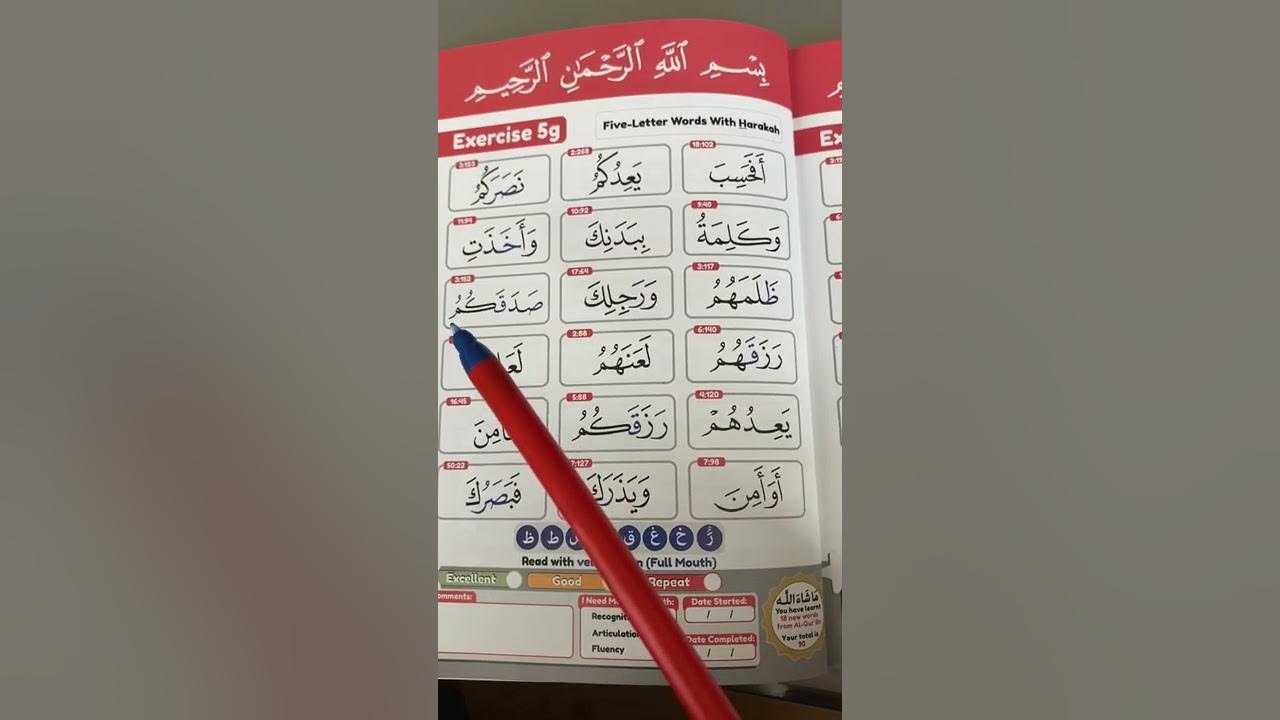 بِسْمِ ٱللَّهِ ٱلرَّحْمَـٰنِ ٱلرَّحِيمِ
Exercise 5g
Five-Letter Words With Harakah
18:102 2:268 3:123
أَفَحَسِبَ يَعِدُكُمُ نَصَرَكُمُ
9:40 10:92 11:94
وَكَلِمَةُ بِبَدَنِكَ وَأَخَذَتِ
3:117 17:64 3:152
ظَلَمَهُمُ وَرَجِلِكَ صَدَقَكُمُ
6:140 2:88
رَزَقَهُمُ لَعَنَهُمُ
4:120 5:88 16:45
يَعِدُهُمْ رَزَقَكُمُ
7:98 7:127 50:22
أَوَأَمِنَ وَيَذَرَكَ فَبَصَرُكَ
رُ خ غ ق ط ظ
Read with (Full Mouth)
Excellent Good Repeat
omments:
I Need M
Date Started:
/ /
Fluency
Date Completed:
/ /
مَا شَاءَ اللّٰه
You have learnt
18 new words
from Al-Qur'an
Your total is
90